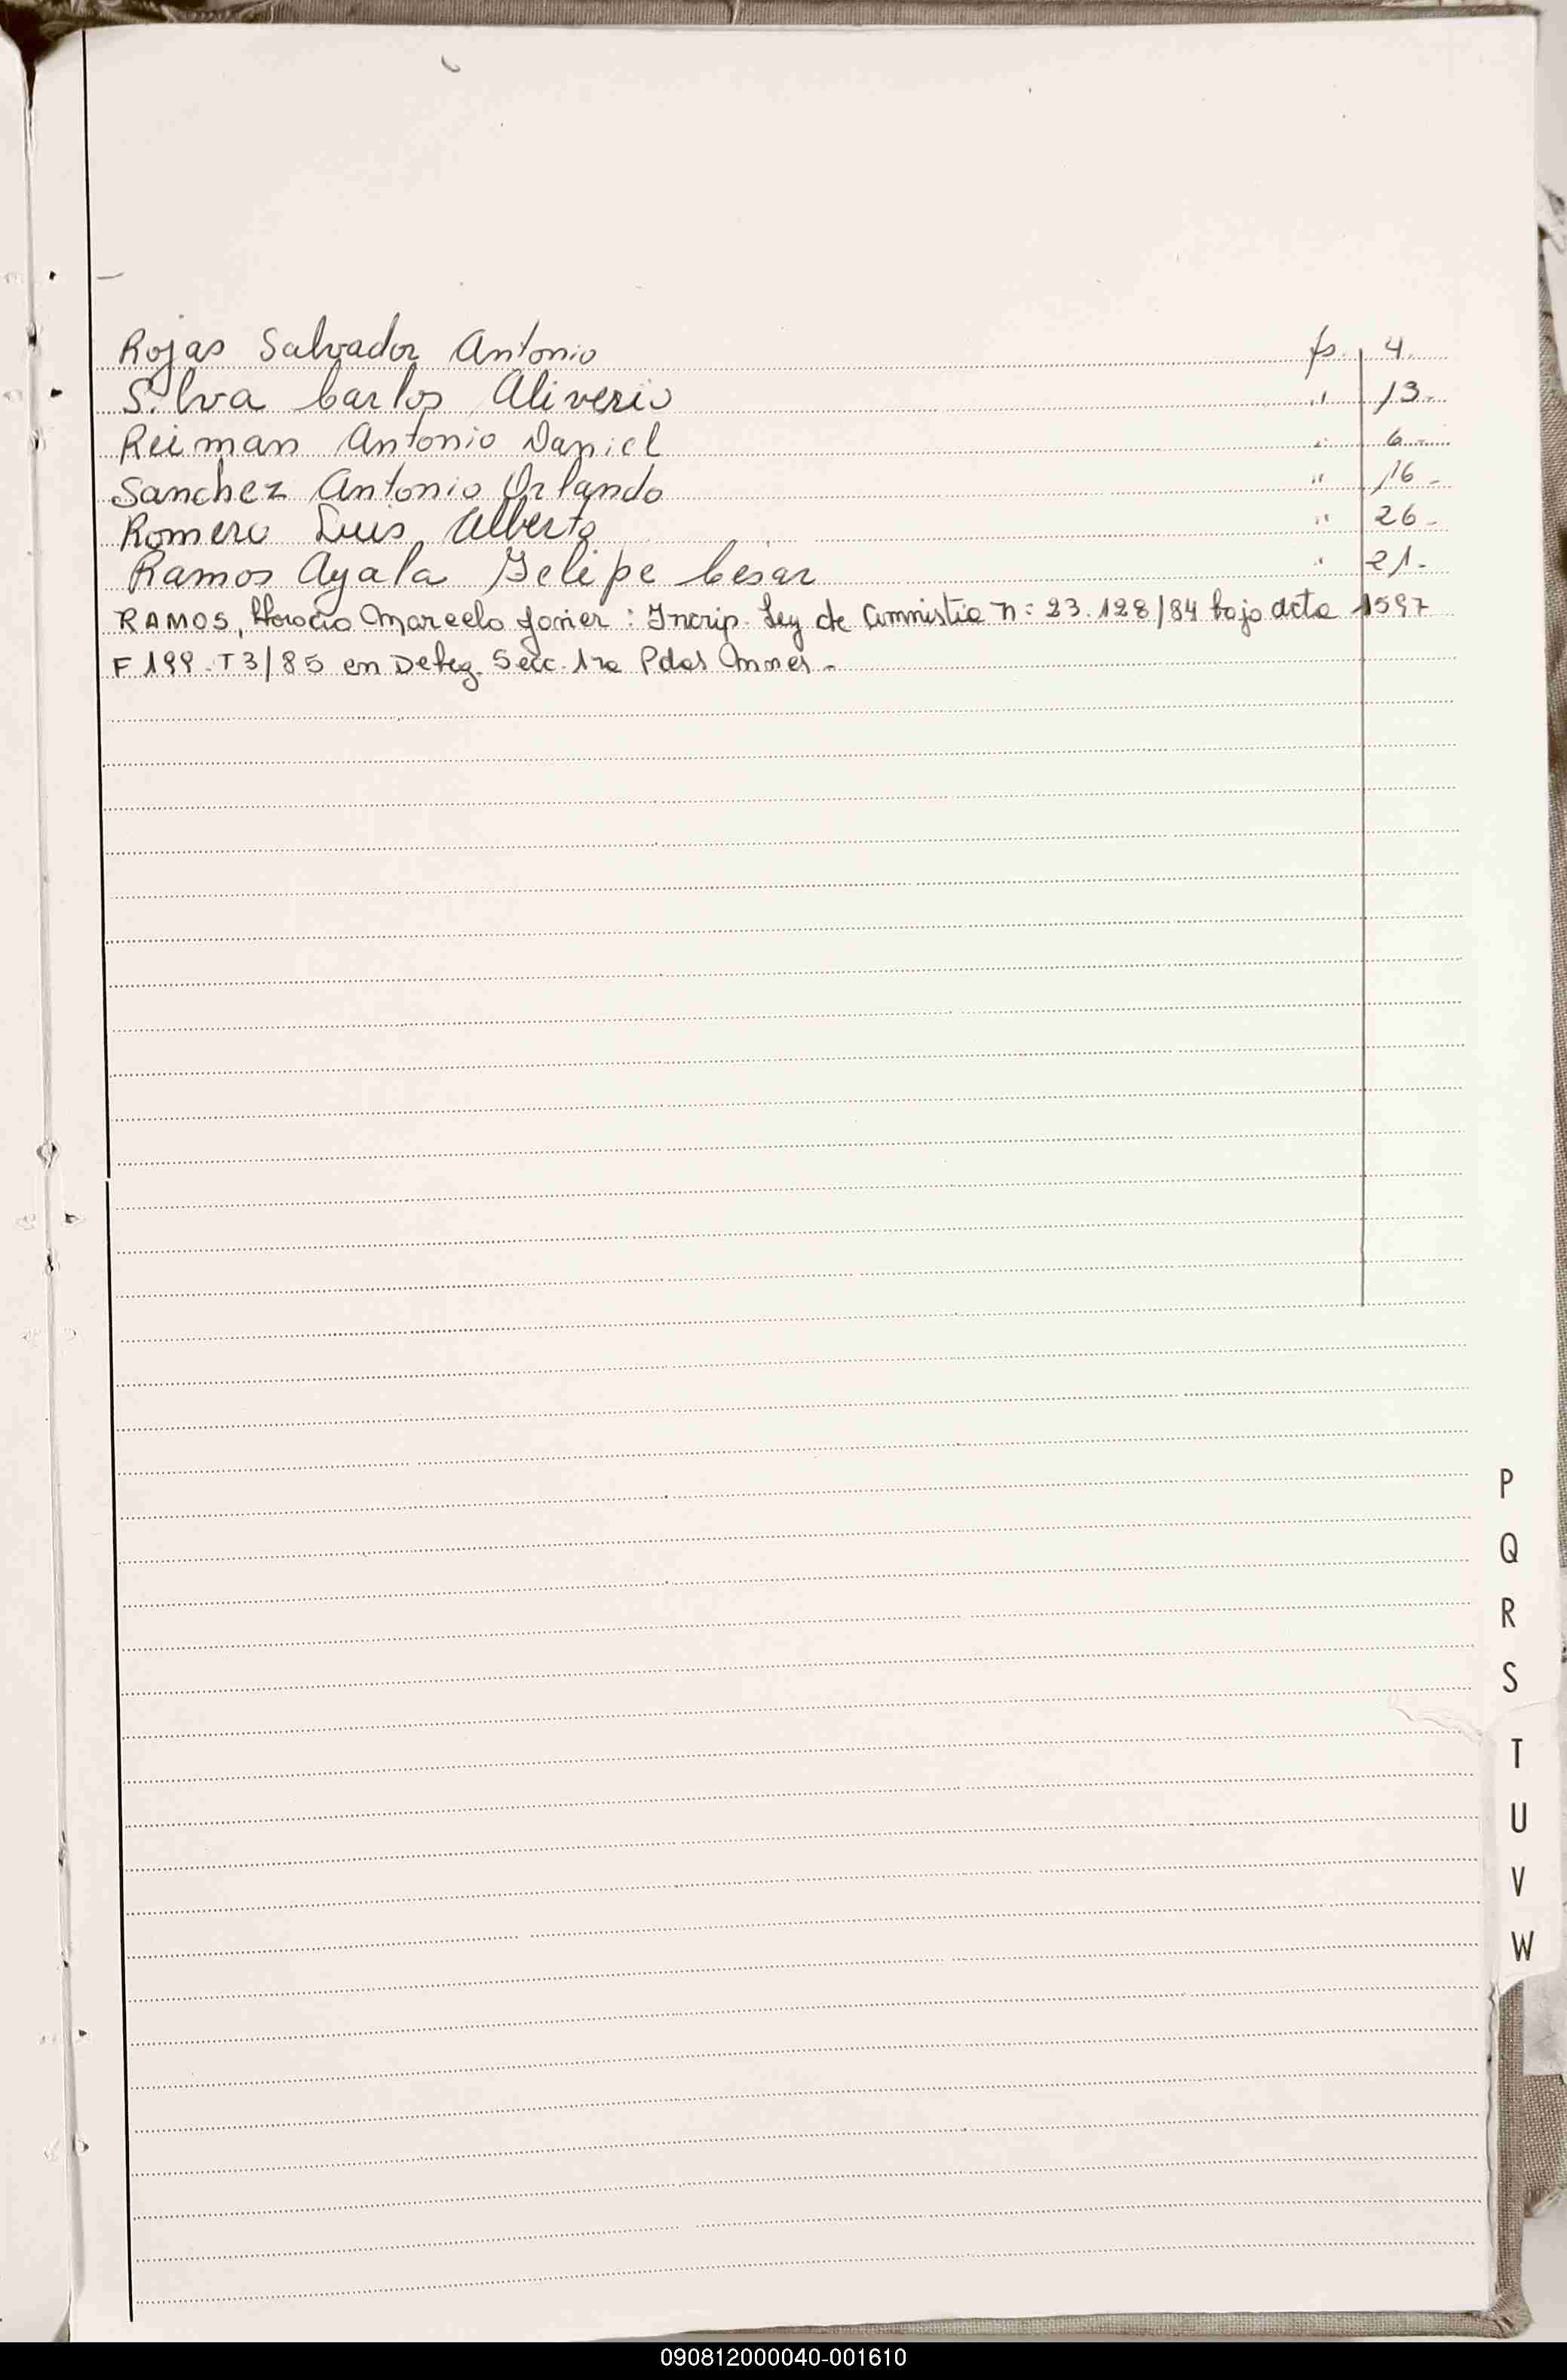 Rojas Salvador Antonio fs. 4.
Silva Carlos Aliverio " 13-
Reiman Antonio Daniel " 6-
Sanchez Antonio Orlando " 16-
Romero Luis Alberto " 26-
Ramos Ayala Felipe Cesar " 21-
RAMOS, Horacio Marcelo Javier: Incrip. Ley de Amnistia n: 23.128/84 bajo acta 1597
F 199-T3/85 en Deleg. Secc. 1ra Pdas Mnes-
P
Q
R
S
T
U
V
W
090812000040-001610